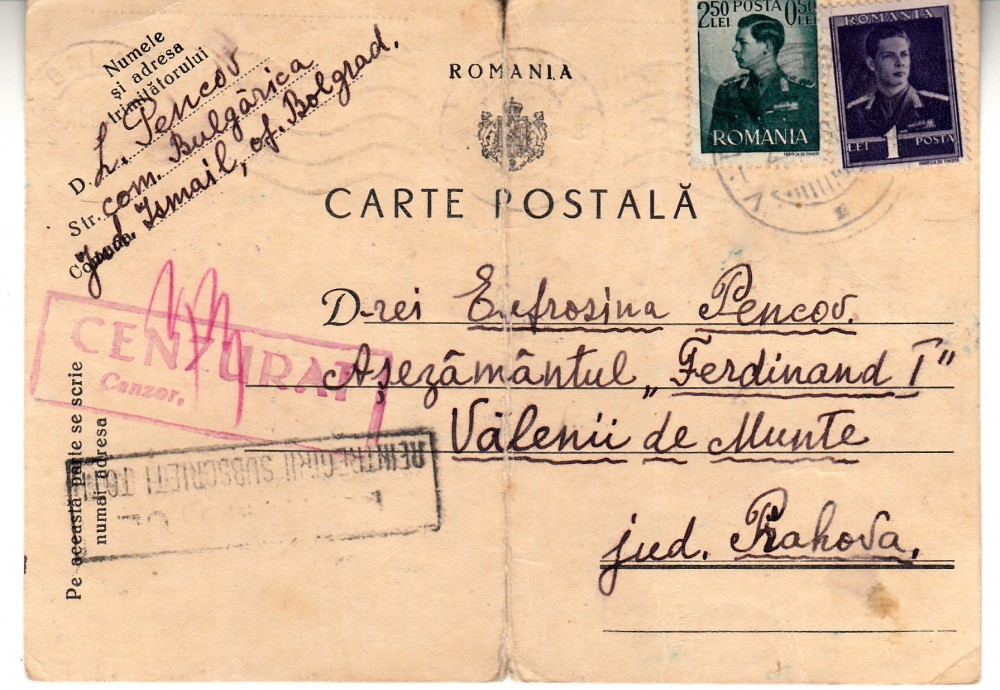 Numele
și adresa
trimițătorului
D. L. Pencov
Str. com. Bulgărica
Comuna Jud. Ismail, of. Bolgrad.
ROMANIA
2.50 POSTA 0.50
LEI LEI
ROMANIA
FABRICA DE TIMBRE
ROMANIA
LEI 1 POSTA
FABRICA DE TIMBRE
CARTE POSTALĂ
D-rei Eufrosina Pencov.
Așezământul „Ferdinand I"
Vălenii de Munte
jud. Prahova.
CENZURAT
Cenzor,
REINTREGIRII SUBSCRIEȚI TOȚI
Pe această parte se scrie
numai adresa